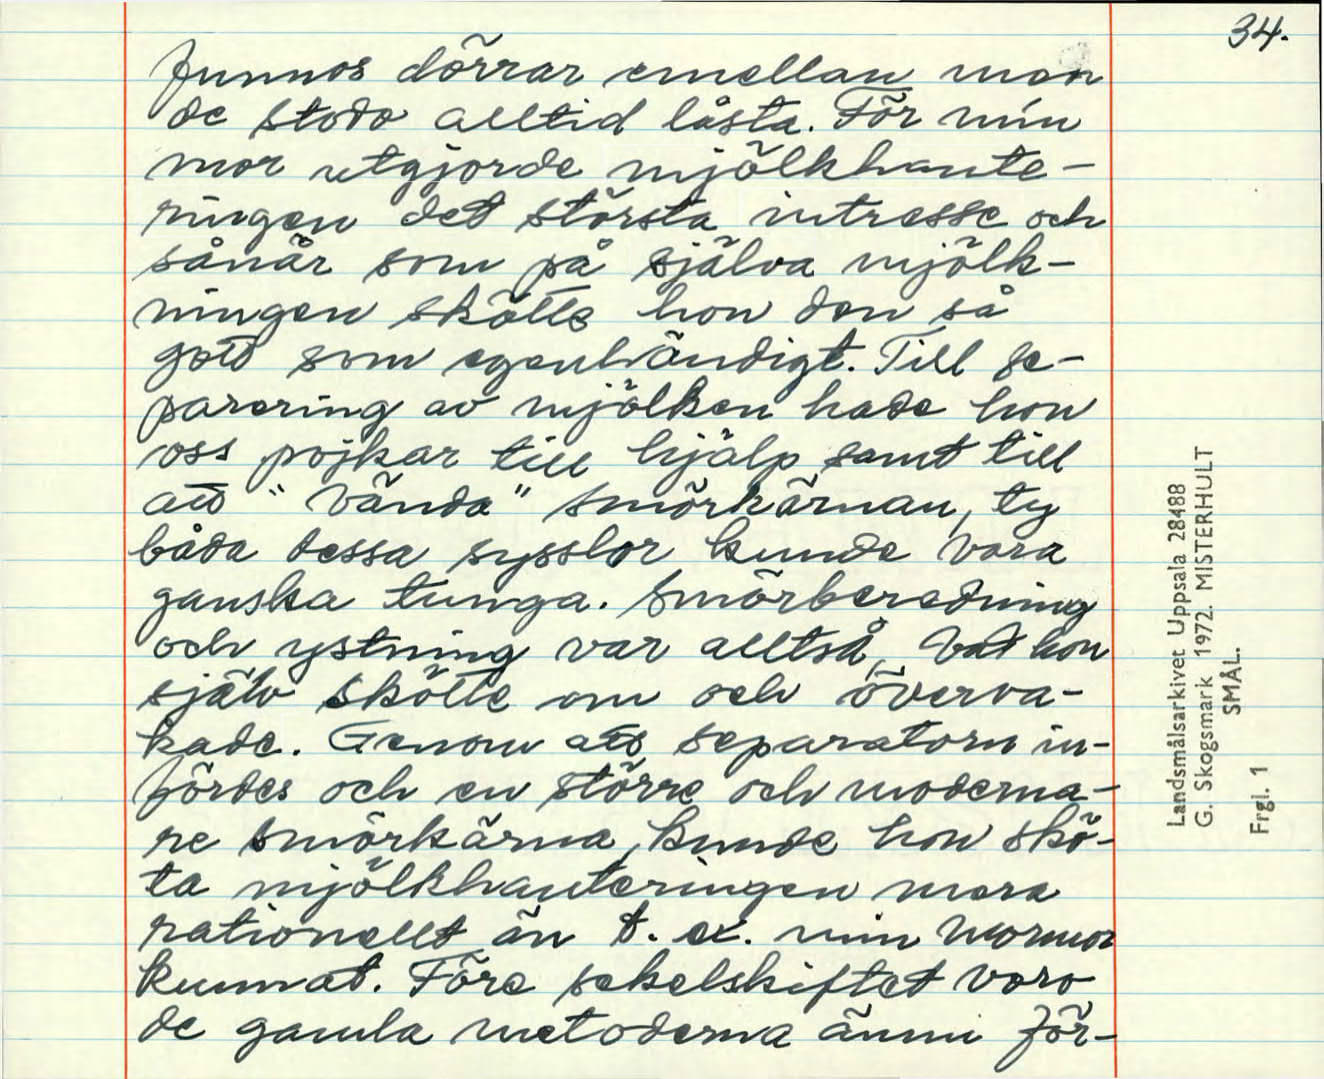 34.
funnos dörrar emellan men
de stodo alltid låsta. För min
mor utgjorde mjölkhante-
ringen det största intresse och
sånär som på själva mjölk-
ningen skötte hon den så
gott som egenhändigt. Till se-
parering av mjölken hade hon
oss pojkar till hjälp samt till
att "vända" smörkärnan, ty
båda dessa sysslor kunde vara
ganska tunga. Smörberedning
och ystning var alltså, vad hon
själv skötte om och överva-
kade. Genom att separatorn in-
fördes och en större och moderna-
re smörkärna, kunde hon skö-
ta mjölkhanteringen mera
rationellt än t. ex. min mormor
kunnat. Före sekelskiftet voro
de gamla metoderna ännu för-
Landsmålsarkivet Uppsala 28488
G. Skogsmark 1972. MISTERHULT
SMÅL.
Frgl. 1